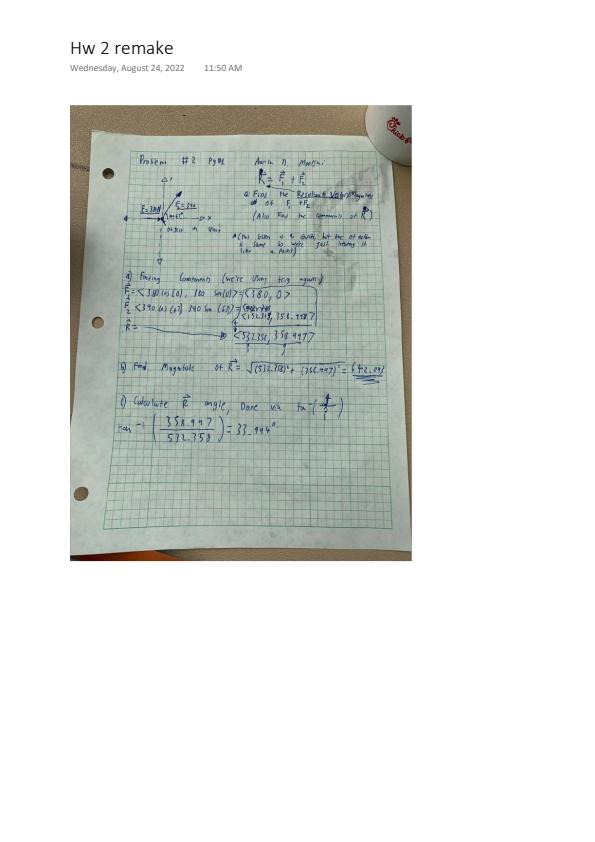 Hw 2 remake
Wednesday, August 24, 2022 11:50 AM
Problem #2
R = F1 + F2
a) Find the Resultant Vector, Magnitude
of F1 + F2
(Also Find the components of R)
F1=380 F2=390
x
is same so we're just leaving it
like a Point)
a) Finding Components (we're Using trig again)
F1 = <380 cos(0), 380 sin(0)> = <380, 0>
F2 <390 cos(67) 390 sin (67)> =
<152.358, 358.997>
R = <532.358, 358.997>
b) Find Magnitude of R = √(532.358)² + (358.997)² = 642.091
c) Calculate R angle, Done via tan⁻¹(j/i)
tan⁻¹(358.997/532.358) = 33.994°